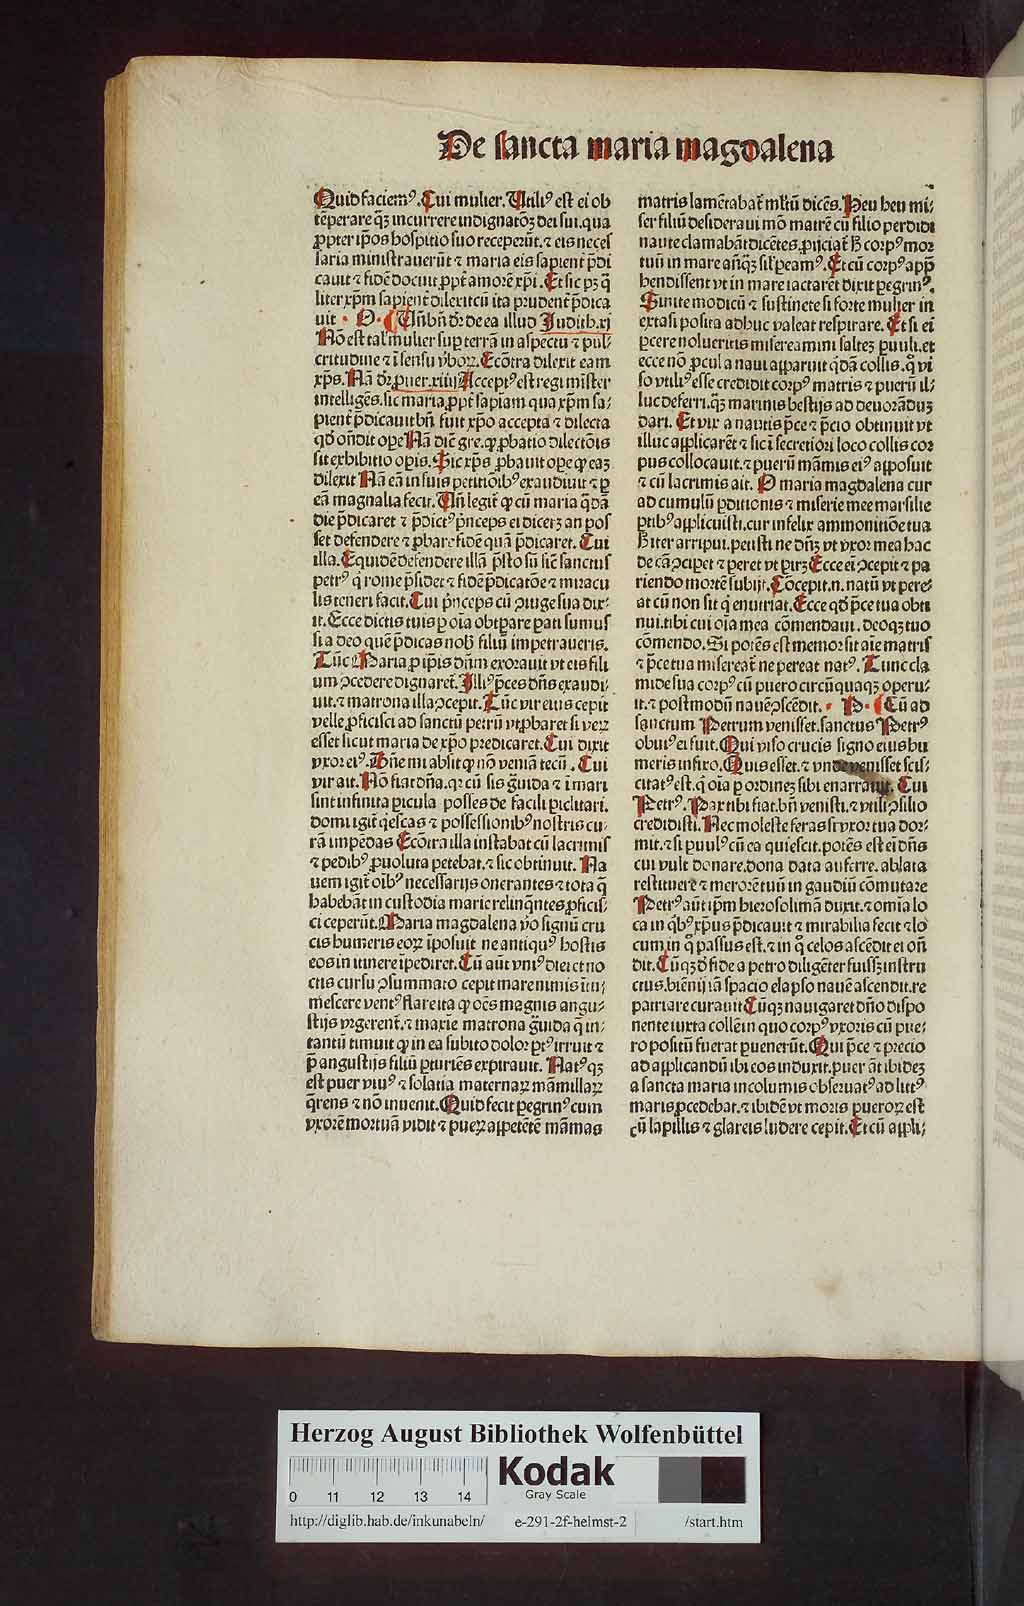 De sancta maria magdalena
Quid faciemꝰ. Cui mulier. Utiliꝰ est ei ob
tēperare qȝ incurrere indignatōȝ dei sui. qua
ꝓpter ip̄os hospitio suo receperūt. ⁊ eis neces
saria ministrauerūt ⁊ maria eis sapient᷑ p̄di
cauit ⁊ fidē docuit ꝓpt᷑ amorē xp̄i. Et sic pȝ q̄
liter xp̄m sapient᷑ dilexit cū ita prudent᷑ p̄dica
uit · O · Un̄ bn̄ dr̄ de ea illud Judith. xj
Nō est tal' mulier suꝑ terrā in aspectu ⁊ pul⸗
critudine ⁊ ī sensu v̄boꝝ. Ecōtra dilexit eam
xp̄s. Nā dr̄ puer. xiiij Acceptꝰ est regi mīster
intelligēs. sic maria ꝓpt᷑ sapīam. qua xp̄m sa⸗
pient᷑ p̄dicauit bn̄ fuit xp̄o accepta ⁊ dilecta
qd̄ on̄dit ope Nā dic̄ gre. ꝙ ꝓbatio dilectōis
sit exhibitio opis. Sic xp̄s ꝓbauit ope ꝙ eaȝ
dilexit Nā eā in suis petitiōibꝰ exaudiuit ⁊ ꝑ
eā magnalia fecit. Un̄ legit᷑ ꝙ cū maria q̄dā
die p̄dicaret ⁊ p̄dictꝰ p̄nceps ei dicerȝ an pos
set defendere ⁊ ꝓbare fidē quā p̄dicaret. Cui
illa. Equidē defendere illā p̄sto sū sic̄ sanctus
petrꝰ q̄ rome p̄sidet ⁊ fidē p̄dicatōe ⁊ miracu
lis teneri facit. Cui p̄nceps cū ꝯiuge sua dix⸗
it. Ecce dictis tuis ꝑ oīa obtꝑare ꝑati sumus
si a deo quē p̄dicas nob̄ filiū impetraueris.
Tūc Maria ꝓ ip̄is dn̄m exorauit vt eis fili
um ꝯcedere dignaret᷑. Illiꝰ p̄ces dn̄s exaudi⸗
uit. ⁊ matrona illa ꝯcepit. Tūc vir eius cepit
velle ꝓficisci ad sanctū petrū vt ꝓbaret si veꝝ
esset sicut maria de xp̄o predicaret. Cui dixit
vxor eiꝰ. Dn̄e mi absit ꝙ nō veniā tecū. Cui
vir ait. Nō fiat dn̄a. qꝛ cū sis g̈uida ⁊ ī mari
sint infinita ꝑicula posses de facili ꝑiclitari.
domi igit᷑ qescas ⁊ possessionibꝰ nostris cu⸗
rā impēdas Ecōtra illa instabat cū lacrimis
⁊ pedibꝰ ꝓuoluta petebat. ⁊ sic obtinuit. Na
uem igit᷑ oībꝰ necessarijs onerantes ⁊ tota q̄
habebāt in custodia marie relinq̄ntes ꝓficis⸗
ci ceperūt. Maria magdalena v̄o signū cru
cis humeris eoꝝ īposuit ne antiquꝰ hostis
eos in itinere īpediret. Cū aūt vniꝰ diei ct no
ctis cursu ꝯsummato cepit mare nimis itu⸗
mescere ventꝰ flare ita ꝙ oēs magnis angu⸗
stijs vrgerent᷑. ⁊ maxīe matrona g̈uida q̄ in⸗
tantū timuit ꝙ in ea subito dolor ꝑtꝰ irruit ⁊
p̄ angustijs filiū ꝑturiēs expirauit. Natꝰ qȝ
est puer viuꝰ ⁊ solatia maternaꝝ māmillaꝝ
q̄rens ⁊ nō inuenit. Quid fecit ꝑegrinꝰ cum
vxorē mortuā vidit ⁊ pueꝝ appetētē māmas
matris lamētabat᷑ ml'tū dicēs. Heu heu mi⸗
ser filiū desideraui mō matrē cū filio perdidi
naute clamabāt dicētes. ꝓijciat᷑ h̄ corpꝰ mor
tuū in mare an̄qȝ sil' ꝑeamꝰ. Et cū corpꝰ app̄
hendissent vt in mare iactarēt dixit ꝑegrinꝰ.
Sinite modicū ⁊ sustinete si forte mulier in
extasi posita adhuc valeat respirare. Et si ei
ꝑcere nolueritis misereamini salteȝ ꝑuuli. et
ecce nō ꝓcul a naui apparuit q̄dā collis. qͦ vi
so vtiliꝰ esse credidit corpꝰ matris ⁊ puerū il⸗
luc deferri. qȝ marinis bestijs ad deuorāduȝ
dari. Et vix a nautis p̄ce ⁊ p̄cio obtinuit vt
illuc applicarēt ⁊ sic ī secretiori loco collis cor
pus collocauit. ⁊ puerū māmis eiꝰ apposuit
⁊ cū lacrimis ait. O maria magdalena cur
ad cumulū ꝑditionis ⁊ miserie mee marsilie
ꝑtibꝰ applicuisti. cur infelix ammonitiōe tua
h̄ iter arripui. petisti ne dn̄ȝ vt vxor mea hac
de cā ꝯciꝑet ⁊ ꝑeret vt ꝑirȝ Ecce ei ꝯcepit ⁊ pa
riendo mortē subijt. Cōcepit. n. natū vt pere⸗
at cū non sit q̄ enutriat. Ecce qd̄ p̄ce tua obti
nui. tibi cui oīa mea cōmendaui. deoqȝ tuo
cōmendo. Si potēs est memor sit aīe matris
⁊ p̄ce tua misereat᷑ ne pereat natꝰ. Tunc cla
mide sua corpꝰ cū puero circūquaqȝ operu⸗
it. ⁊ postmodū nauē ꝯscēdit. · P · Cū ad
sanctum Petrum venisset. sanctus Petrꝰ
obuiꝰ ei fuit. Qui viso crucis signo eius hu
meris infixo. Quis esset. ⁊ vnde venisset scis⸗
citatꝰ est. q̄ oīa ꝑ ordineȝ sibi enarrauit. Cui
Petrꝰ. Pax tibi fiat. bn̄ venisti. ⁊ vtili ꝯsilio
credidisti. Nec moleste feras si vxor tua dor⸗
mit. ⁊ si ꝑuulꝰ cū ea quiescit. potēs est ei dn̄s
cui vult donare. dona data auferre. ablata
restituere ⁊ merorē tuū in gaudiū cōmutare
Petrꝰ aūt ip̄m hierosolimā duxit. ⁊ omīa lo
ca in q̄bꝰ xp̄us p̄dicauit ⁊ mirabilia fecit ⁊ lo
cum. in qͦ passus est. ⁊ in qͦ celos ascēdit ei on̄
dit. Cūqȝ d̄ fide a petro diligēter fuissȝ instru
ctus. biēnij iā spacio elapso nauē ascendit. re
patriare curauit Cūqȝ nauigaret dn̄o dispo
nente iuxta collē in quo corpꝰ vxoris cū pue⸗
ro positū fuerat ꝑuenerūt. Qui p̄ce ⁊ precio
ad applicandū ibi eos induxit. puer āt ibideȝ
a sancta maria incolumis obseruatꝰ ad littꝰ
maris ꝓcedebat. ⁊ ibidē vt moris pueroꝝ est
cū lapillis ⁊ glareis ludere cepit. Et cū appli⸗
Herzog August Bibliothek Wolfenbüttel
0 11 12 13 14
Kodak
Gray Scale
http://diglib.hab.de/inkunabeln/ e-291-2f-helmst-2 /start.htm